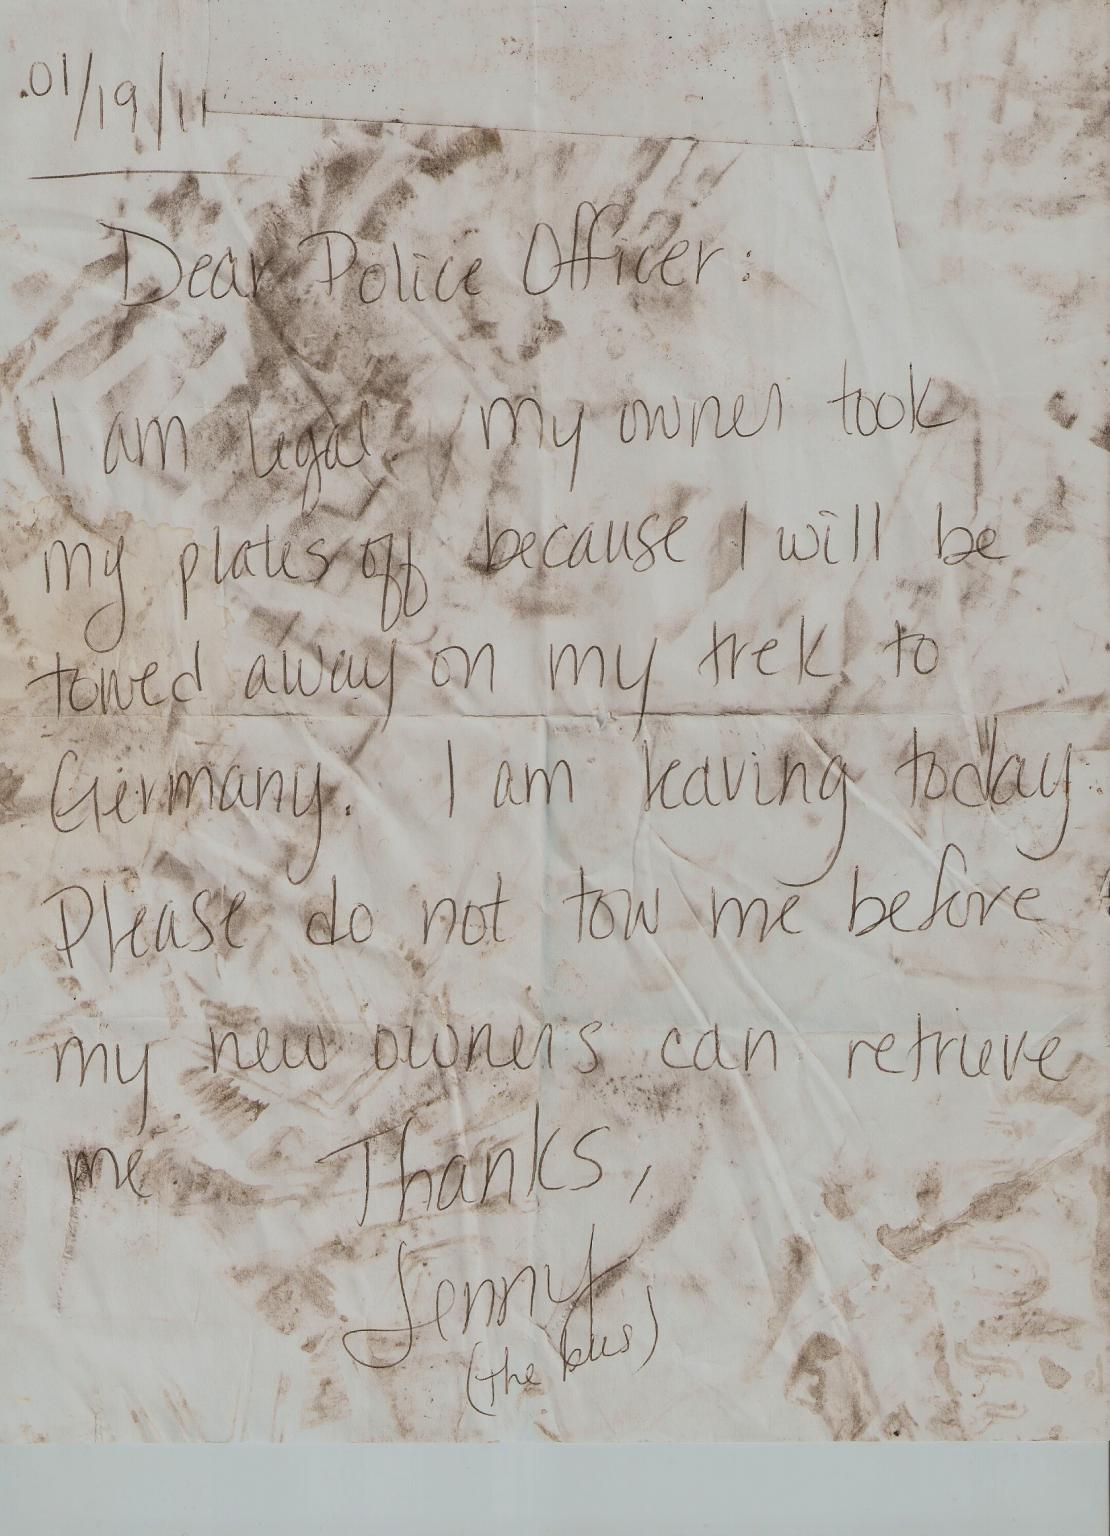 01/19/11
Dear Police Officer:
I am legal. My owner took
my plates off because I will be
towed away on my trek to
Germany. I am leaving today.
Please do not tow me before
my new owners can retrieve
me. Thanks,
Jenny
(the bus)